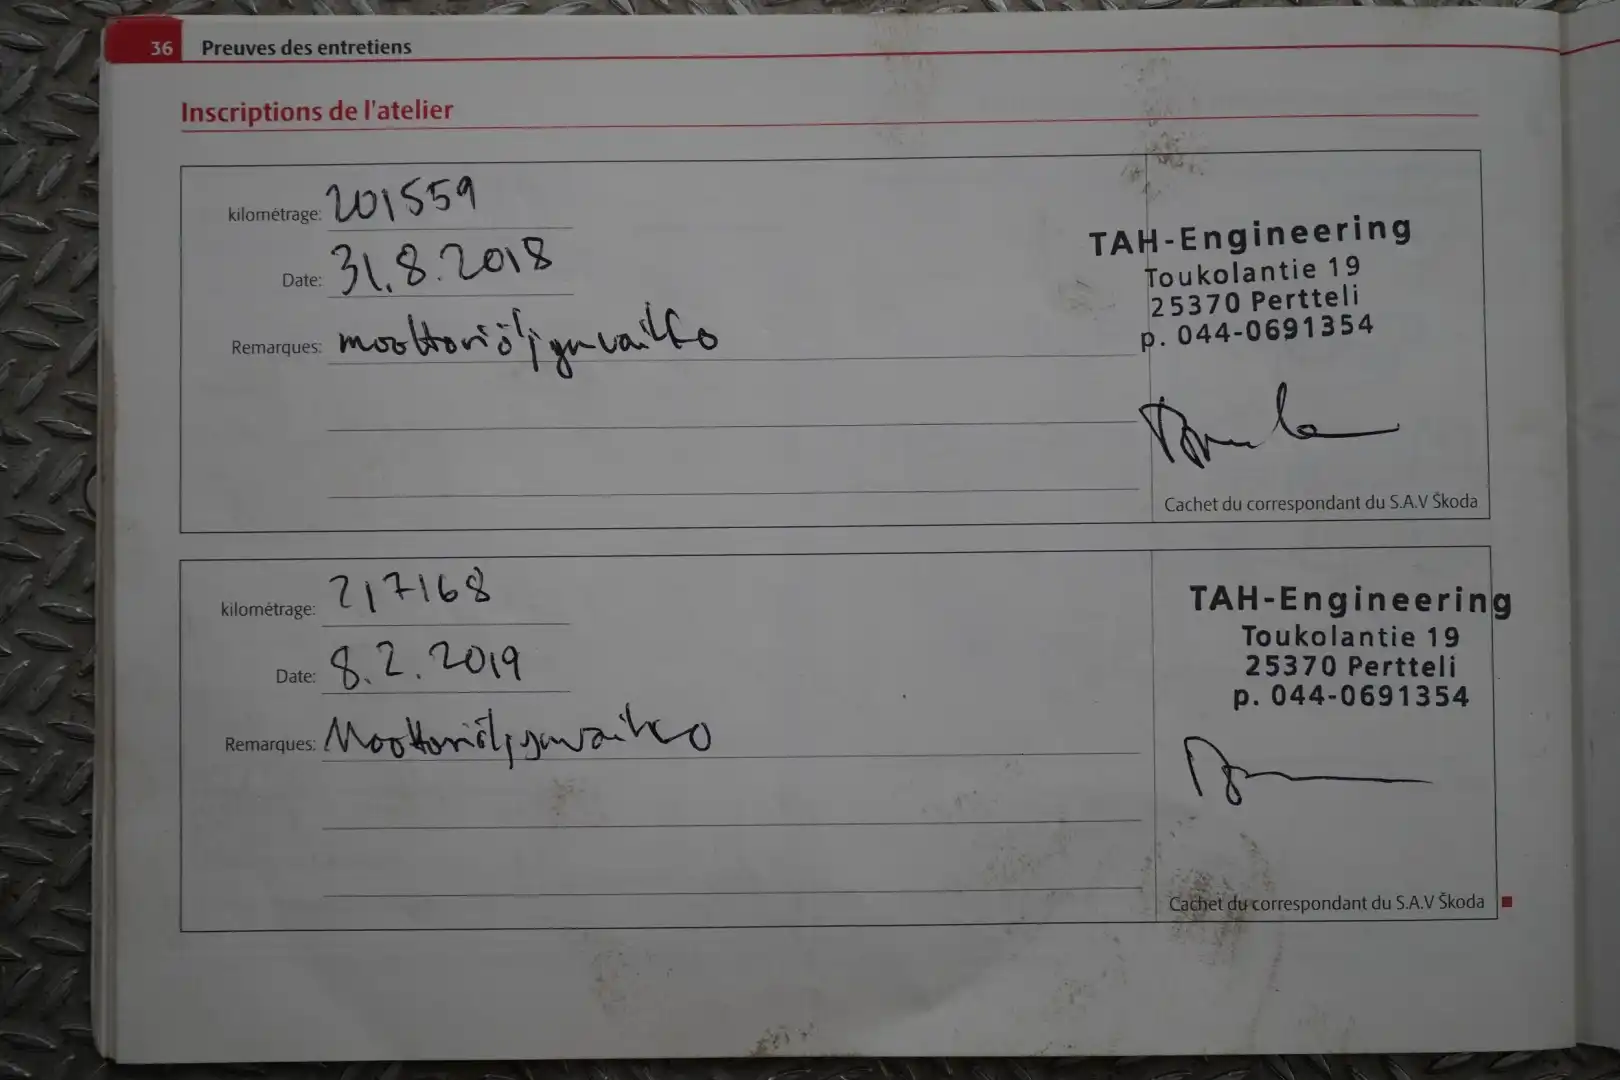 36 Preuves des entretiens
Inscriptions de l'atelier
kilométrage: 201559
Date: 31.8.2018
Remarques: moottoriöljynvaihto
TAH-Engineering
Toukolantie 19
25370 Pertteli
p. 044-0691354
Cachet du correspondant du S.A.V Škoda
kilométrage: 217168
Date: 8.2.2019
Remarques: Moottoriöljynvaihto
TAH-Engineering
Toukolantie 19
25370 Pertteli
p. 044-0691354
Cachet du correspondant du S.A.V Škoda